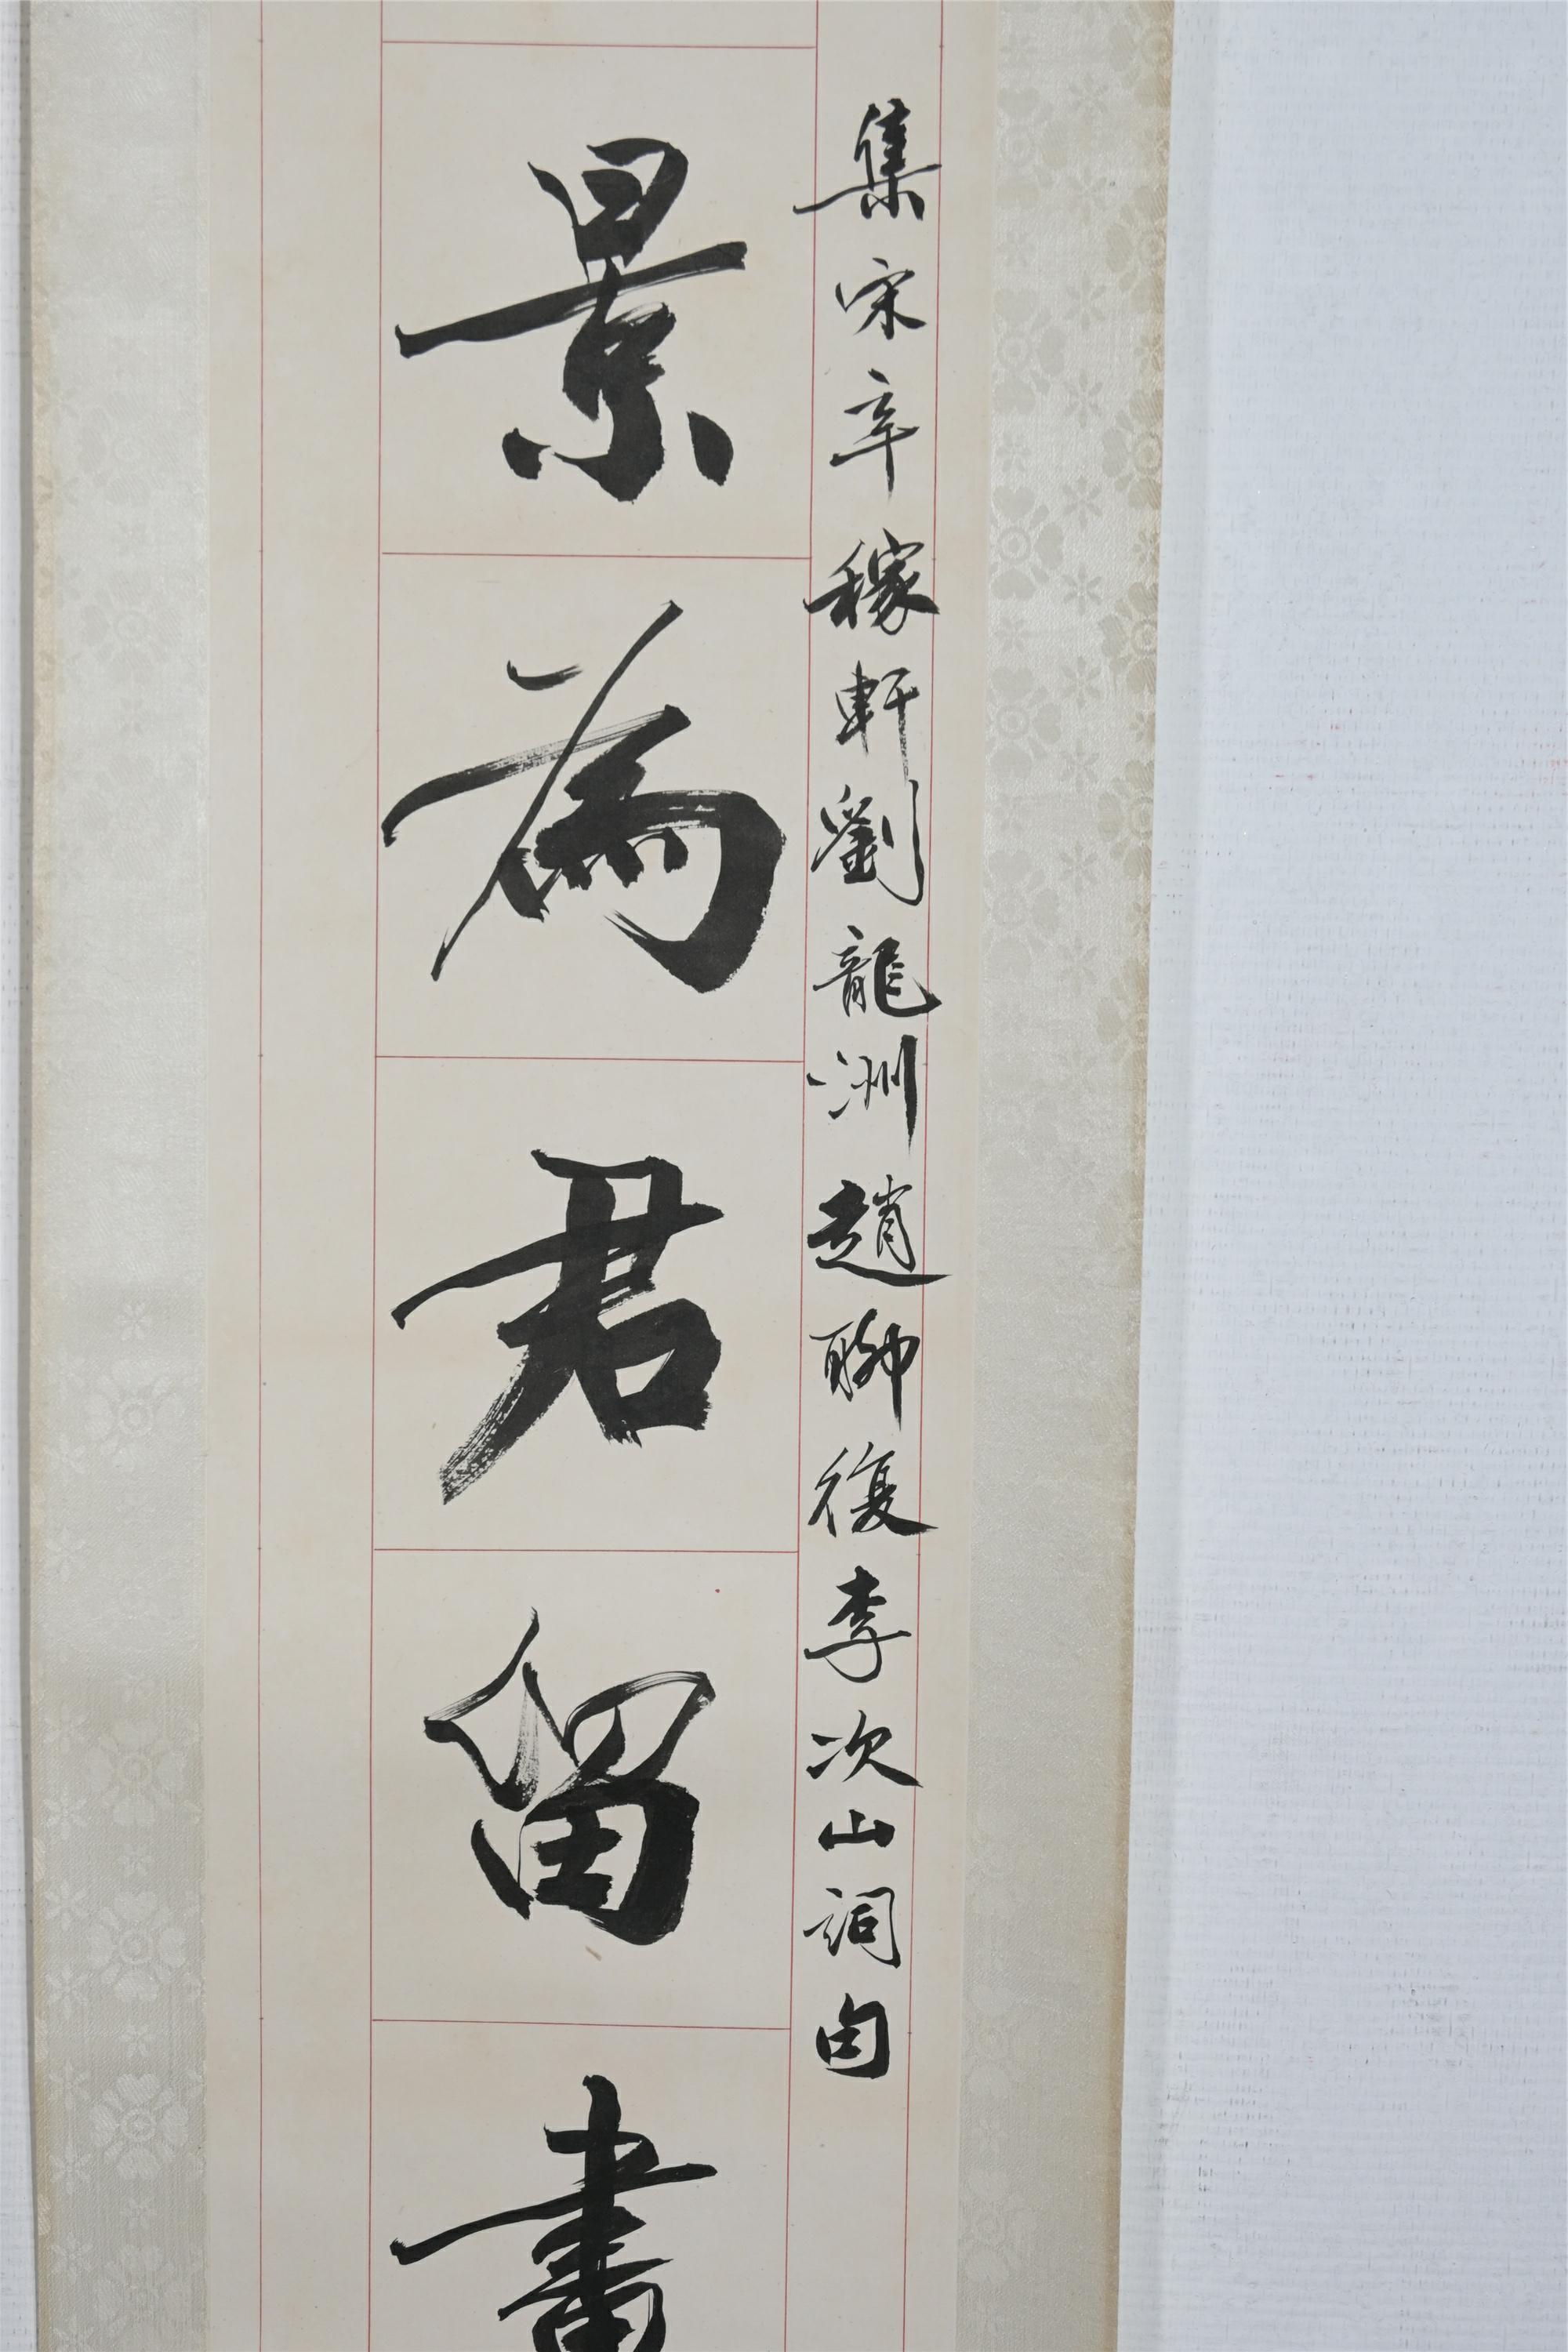 集宋辛稼軒劉龍洲趙聊復李次山詞句
景為君留畫